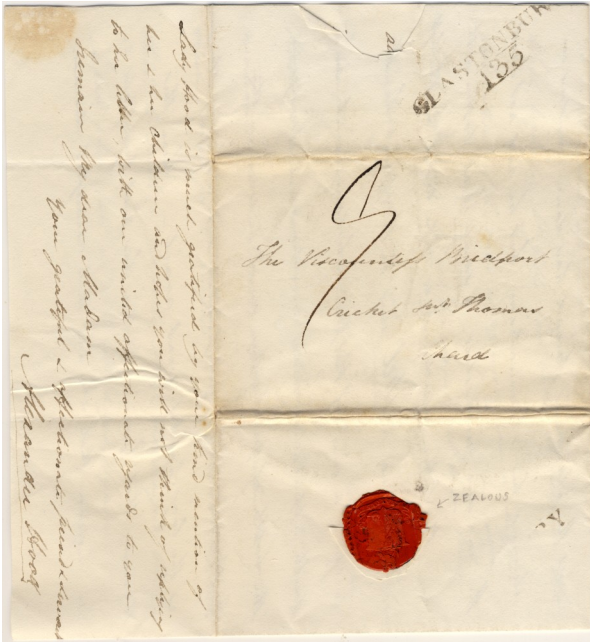 GLASTONBUR
135
The Viscountess Bridport
Cricket St Thomas
Chard
ZEALOUS
Lady Hood is much gratified by your kind mention of
her & her children and hopes you will not think of replying
to her letter with our united affectionate regards to you
I remain My dear Madam
your grateful & affectionate friend & Servant
Alexander Hood